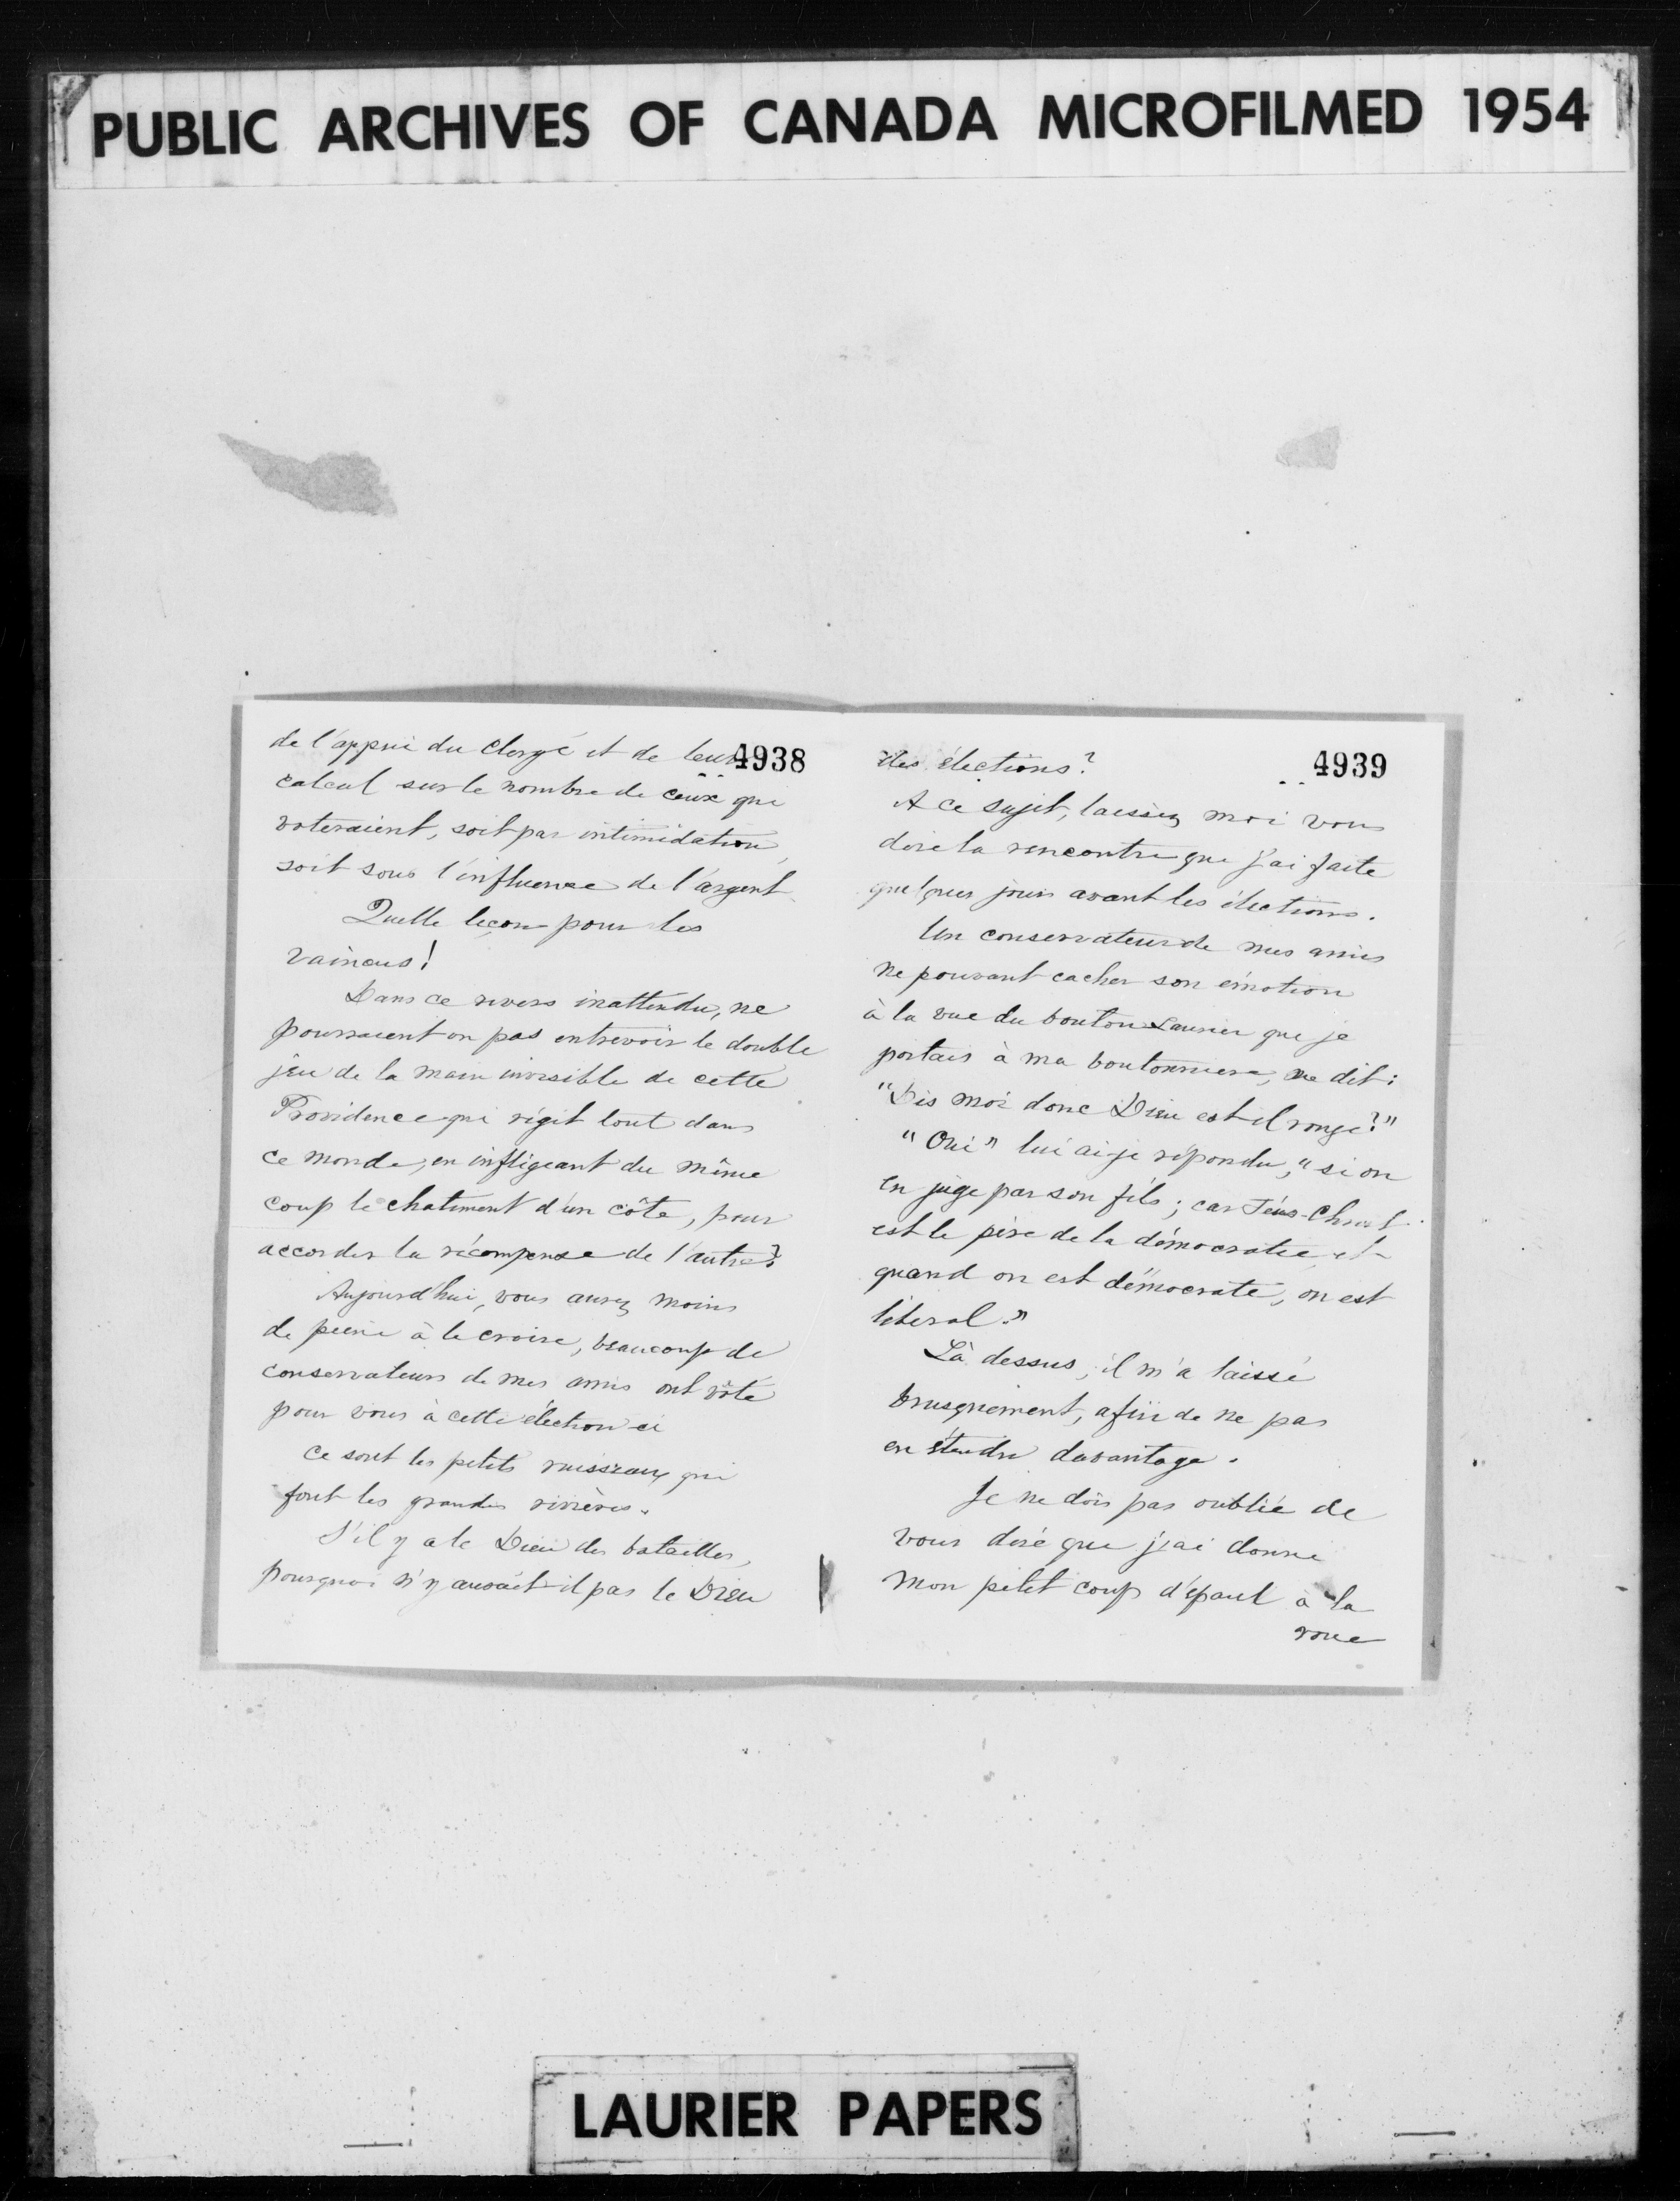 PUBLIC ARCHIVES OF CANADA MICROFILMED 1954
4938
de l'appui du Clergé et de leur
calcul sur le nombre de ceux qui
voteraient, soit par intimidation,
soit sous l'influence de l'argent.
Quelle leçon pour les
vaincus!
Dans ce revers inattendu, ne
pourraient on pas entrevoir le double
jeu de la main invisible de cette
Providence qui régit tout dans
ce monde, en infligeant du même
coup le chatiment d'un côté, pour
accorder la récompense de l'autre?
Aujourd'hui, vous aurez moins
de peine à le croire, beaucoup de
conservateurs de mes amis ont voté
pour vous à cette élection-ci
Ce sont les petits ruisseaux qui
font les grandes rivières.
S'il y a le Dieu des batailles,
pourquoi n'y aurait-il pas le Dieu
4939
des élections?
A ce sujet, laissez moi vous
dire la rencontre que j'ai faite
quelques jours avant les élections.
Un conservateur de mes amis
ne pouvant cacher son émotion
à la vue du bouton Laurier que je
portais à ma boutonniere, me dit:
"Dis moi donc Dieu est il rouge?"
"Oui" lui ai-je répondu, "si on
en juge par son fils; car Jésus-Christ
est le père de la démocratie et
quand on est démocrate, on est
libéral."
Là dessus, il m'a laissé
brusquement, afin de ne pas
en étendre davantage.
Je ne dois pas oublié de
vous dire que j'ai donné
mon petit coup d'épaul à la
roue
LAURIER PAPERS